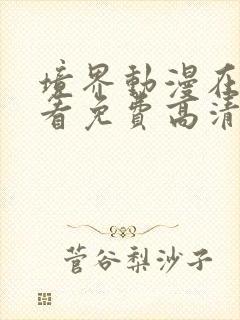 境界動漫在
看免費高清
菅谷梨沙子